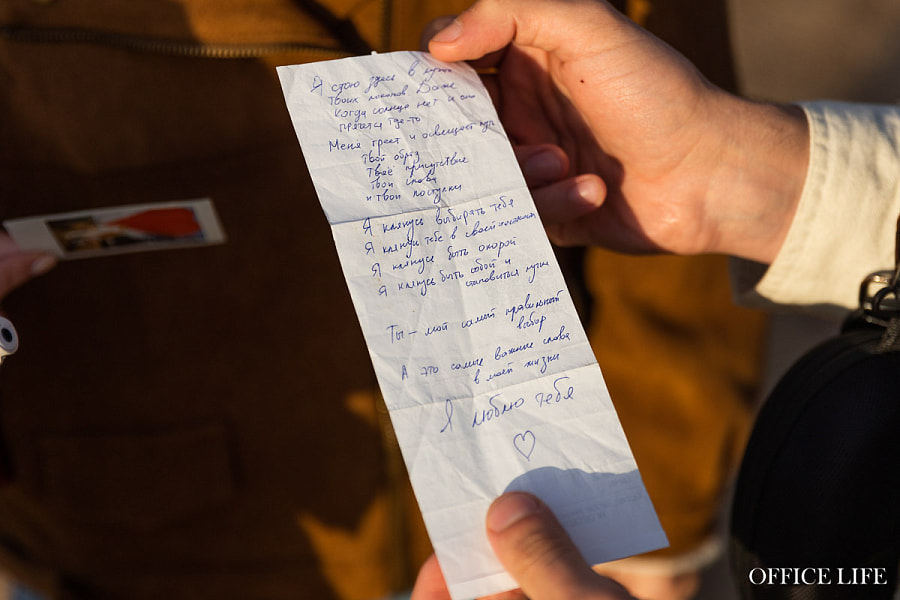 Я стою здесь в лучах
Твоих локонов Даже
Когда солнца нет и оно
прячется где-то
Меня греет и освещает путь
Твой образ
Твоё присутствие
Твои слова
и твои поступки
Я клянусь выбирать тебя
Я клянусь тебе в своей
Я клянусь быть опорой
Я клянусь быть собой и
становиться лучше
Ты – мой самый правильный
выбор
А это самые важные слова
в моей жизни
Я люблю тебя
OFFICE LIFE